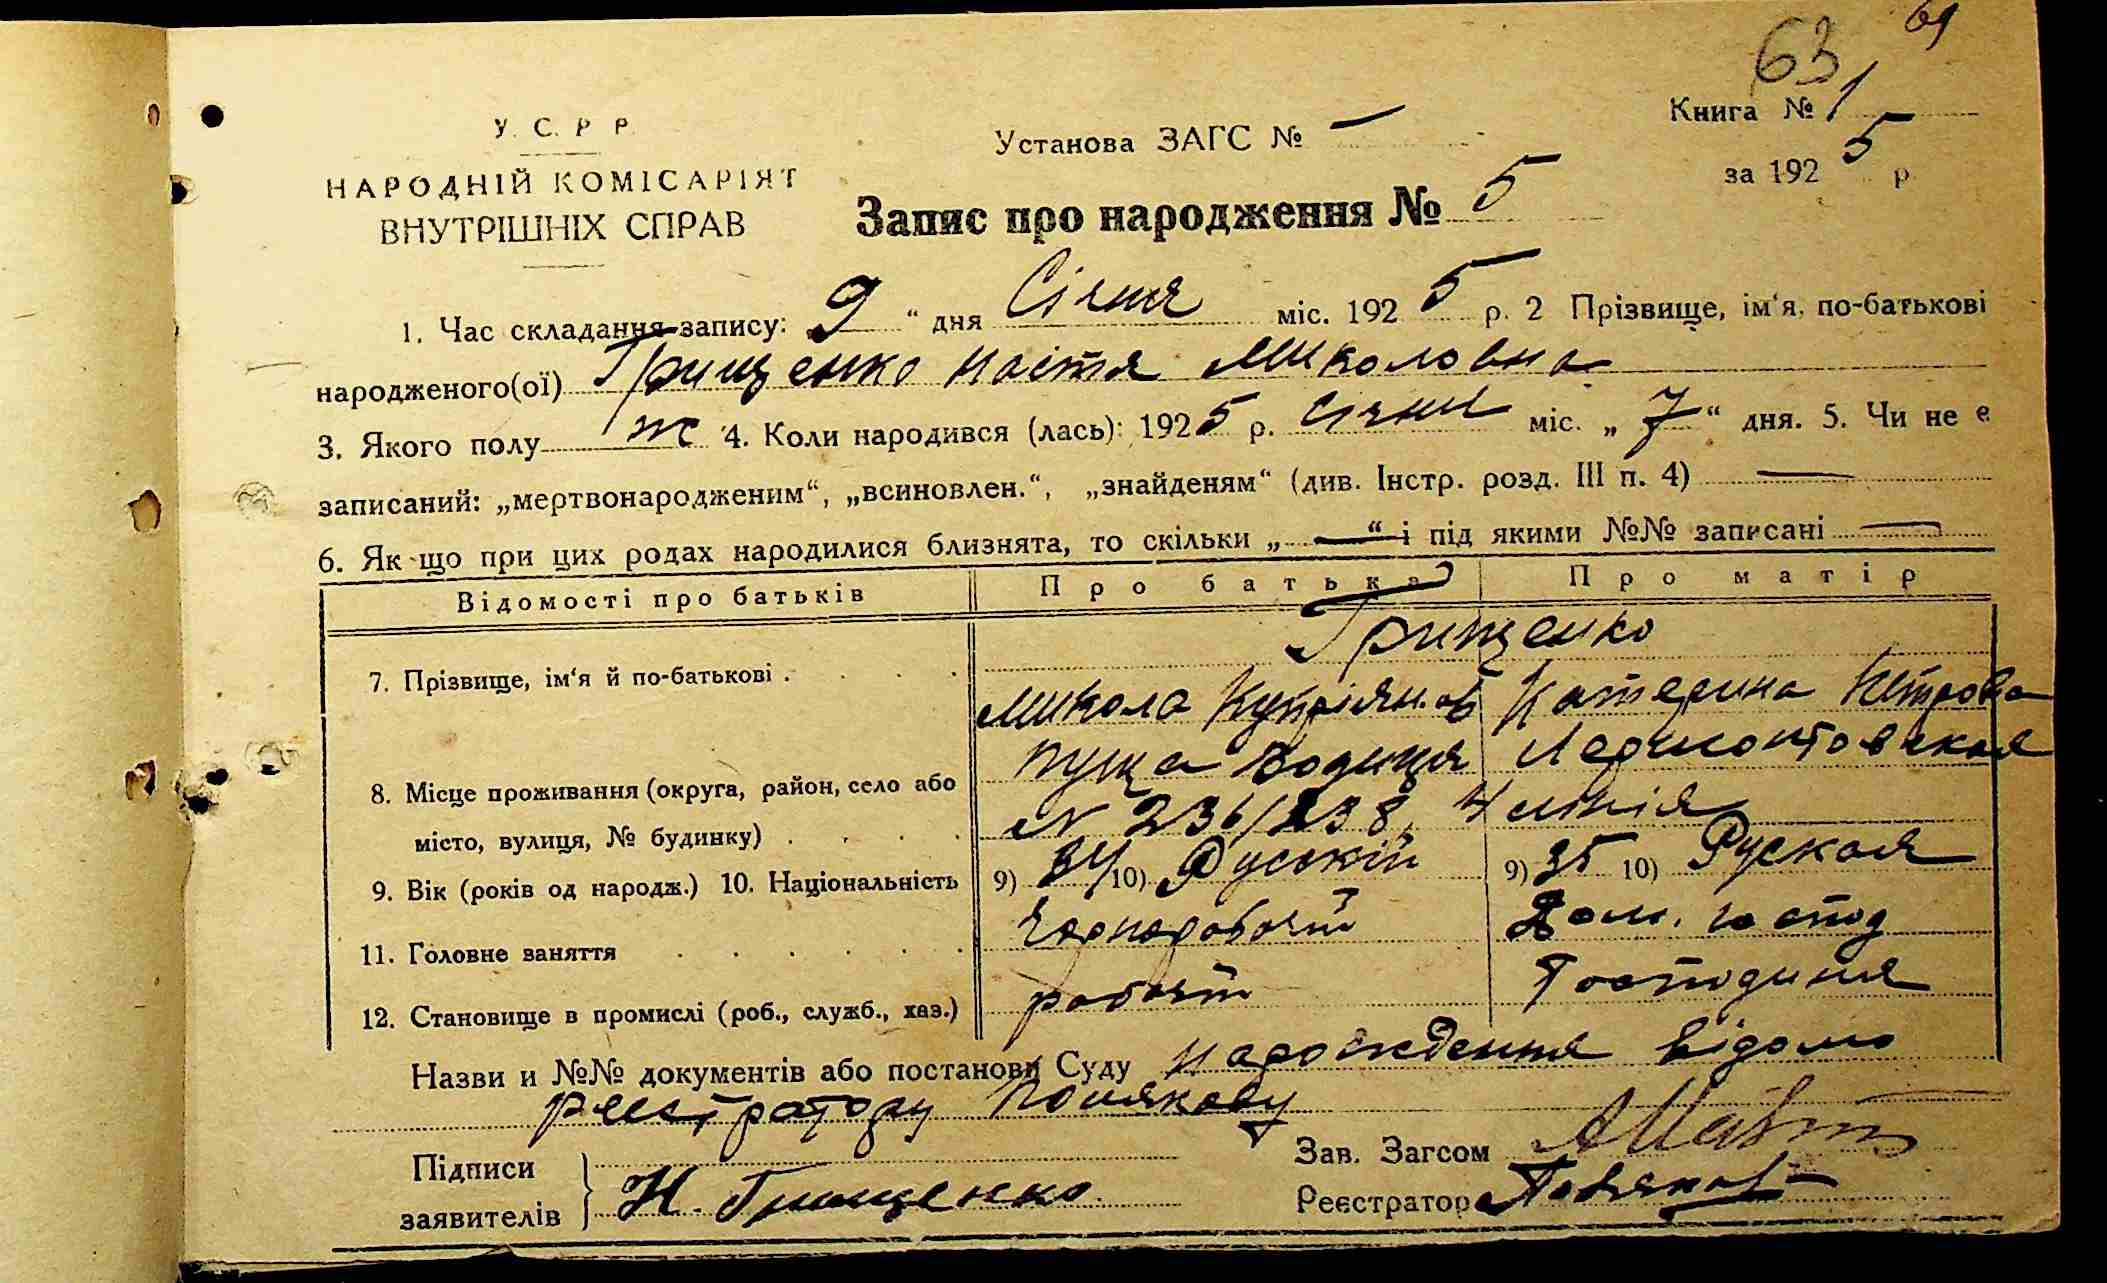 63 69
Книга № 1
У. С. Р. Р.
Установа ЗАГС № —
за 1925 р.
НАРОДНІЙ КОМІСАРІЯТ
ВНУТРІШНІХ СПРАВ
Запис про народження № 5
1. Час складання запису: 9 “ дня Січня міс. 1925 р. 2 Прізвище, ім‘я, по-батькові
народженого(ої) Грищенко Настя Миколовна
3. Якого полу ж 4. Коли народився (лась): 1925 р. січня міс. „ 7 “ дня. 5. Чи не є
записаний: „мертвонародженим“, „всиновлен.“, „знайденям“ (див. Інстр. розд. III п. 4) —
6. Як-що при цих родах народилися близнята, то скільки „ — “ і під якими №№ записані —
Відомості про батьків Про батька Про матір
Грищенко
7. Прізвище, ім‘я й по-батькові . . . .
Микола Купріянов Катерина Петровна
Пуща Водиця Лермонтовская
8. Місце проживання (округа, район, село або
місто, вулиця, № будинку) . . . .
N 236/238, 4 лінія
9. Вік (років од народж.) 10. Національність 9) 34 10) Руській 9) 35 10) Руская
11. Головне заняття . . . . . . Чорноробочій Дом. господ
12. Становище в промислі (роб., служб., хаз.) робочій Господиня
Назви и №№ документів або постанови Суду нарождення відомо
реєстратору Полякову
Підписи
заявителів
Н. Грищенко
Зав. Загсом
Реєстратор Поляков